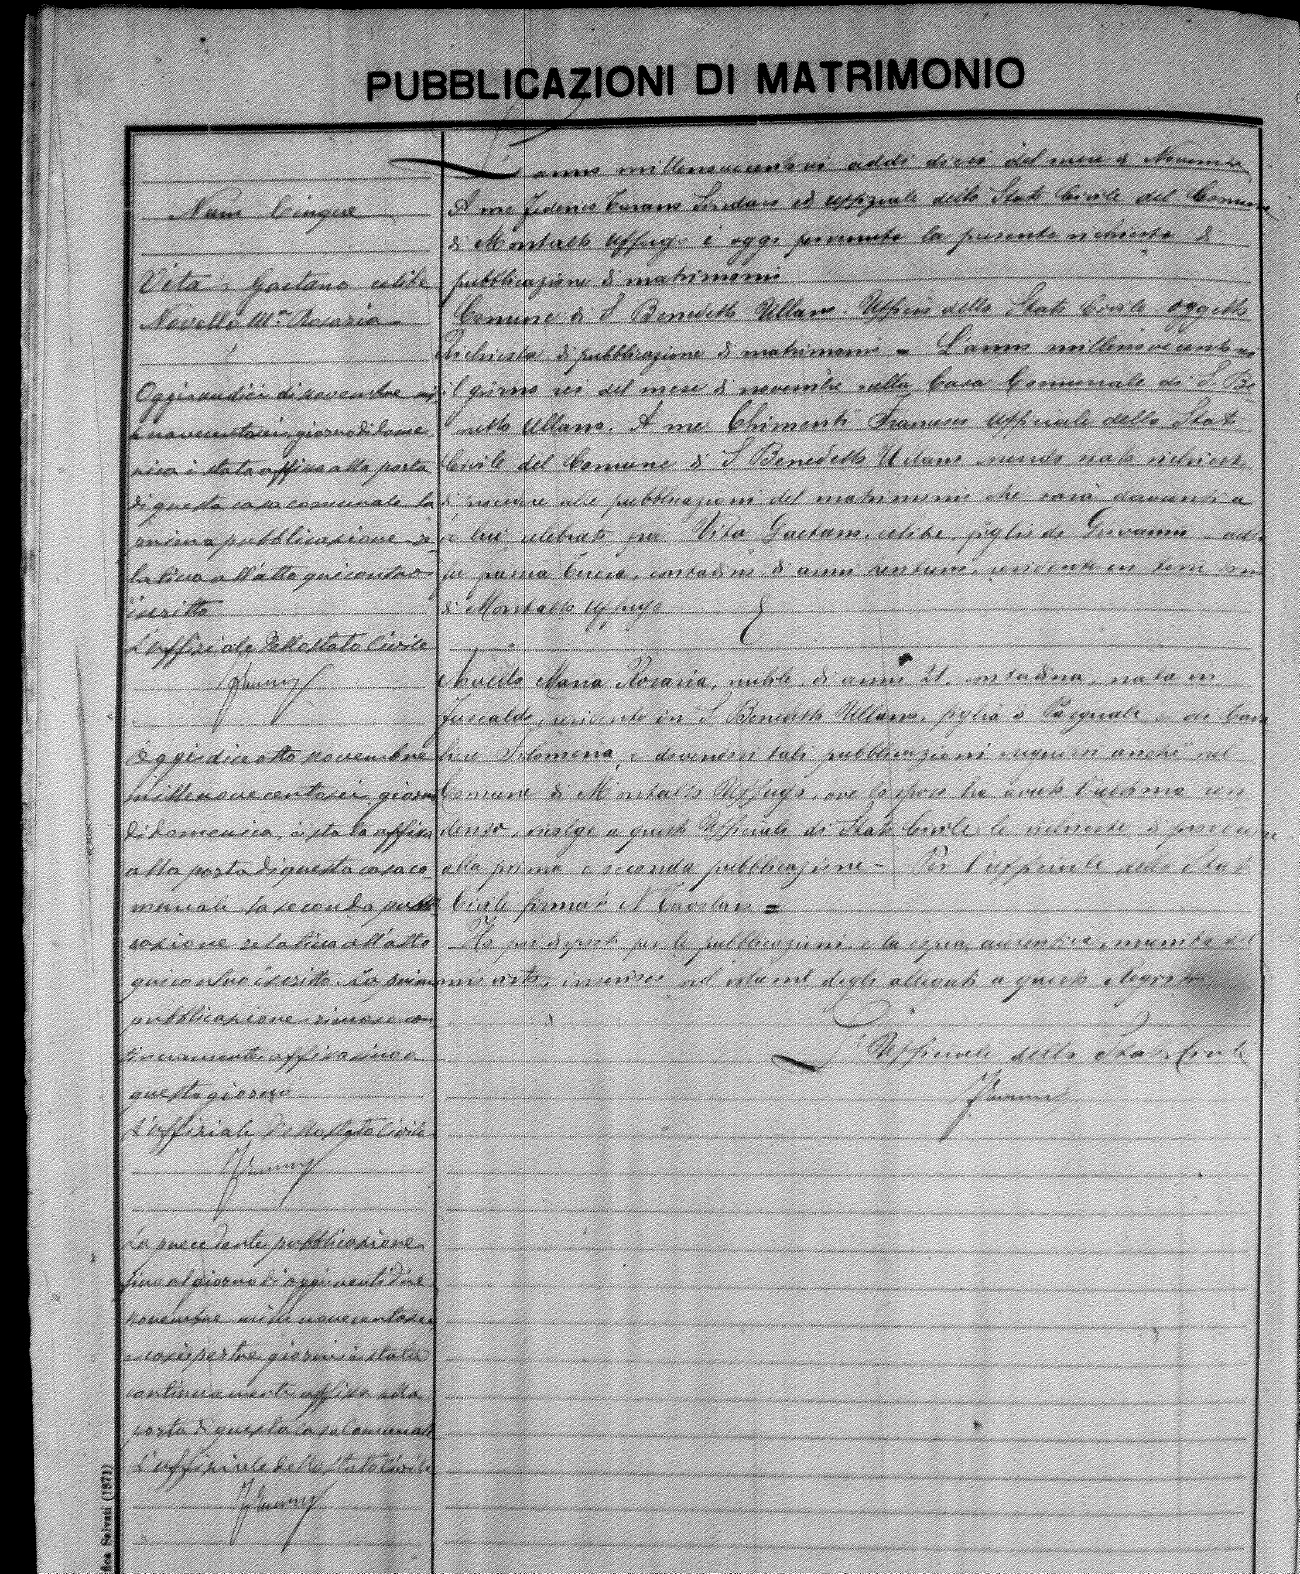 PUBBLICAZIONI DI MATRIMONIO
Num Cinque
Vita Gaetano celibe
Novello M.a Rosaria
Oggi undici di novembre mil
lenovecentosei, giorno di dome
nica è stata affissa alla porta
di questa casa comunale la
prima pubblicazione re
lativa all'atto qui contro
iscritto
L'uffiziale dello Stato Civile
Oggi diciotto novembre
millenovecentosei giorno
di domenica, è stata affissa
alla porta di questa casa co
munale la seconda pubbli
cazione relativa all'atto
qui contro iscritto. La prima
pubblicazione rimase con
tinuamente affissa sino a
questo giorno
L'uffiziale dello Stato Civile
La precedente pubblicazione
fino al giorno di oggi ventidue
novembre millenovecentosei
e così per tre giorni è stata
continuamente affissa alla
porta di questa casa comunale
L'uffiziale dello Stato Civile
L'anno millenovecentosei addì dieci del mese di Novembre
A me Federico Turano Sindaco ed uffiziale dello Stato Civile del Comune
di Montalto Uffugo è oggi pervenuta la presente richiesta di
pubblicazione di matrimonio
Comune di S Benedetto Ullano. Ufficio dello Stato Civile oggetto
Richiesta di pubblicazione di matrimonio = L'anno millenovecentosei
il giorno sei del mese di novembre nella Casa Comunale di S. Be
nedetto Ullano. A me Chimenti Francesco Ufficiale dello Stato
Civile del Comune di S Benedetto Ullano essendo stata richiesta
di procedere alle pubblicazioni del matrimonio che sarà davanti a
lui celebrato fra Vita Gaetano, celibe, figlio di Giovanni e di
contadino di anni ventuno, residente in
di Montalto Uffugo
Novello Maria Rosaria, nubile, di anni 21, contadina, nata in
Fuscaldo, residente in S Benedetto Ullano, figlia di Pasquale e di
Filomena, e dovendosi tali pubblicazioni eseguire anche nel
Comune di Montalto Uffugo, ove lo sposo ha avuto l'ultima resi
denza, rivolge a questo Ufficiale di Stato Civile la richiesta di procedere
alla prima e seconda pubblicazione - Per l'ufficiale dello Stato
Civile firmato N
Ho poi disposto per le pubblicazioni e la copia munita del
mio visto, inserisco nel volume degli allegati a questo Registro
L'Uffiziale dello Stato Civile
(1871)